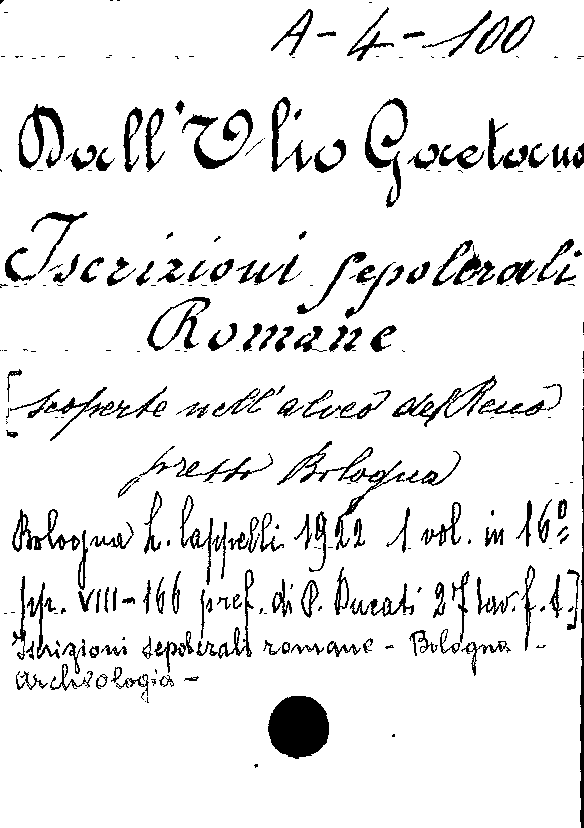 A-4-100
Dall'Olio Gaetano
Iscrizioni sepolcrali
Romane
[scoperte nell'alveo del Reno
presso Bologna
Bologna L. Cappelli 1922 1 vol. in 16º
pp. VIII-166 pref. di P. Ducati 27 tav. f. t.]
Iscrizioni sepolcrali romane - Bologna -
Archeologia -